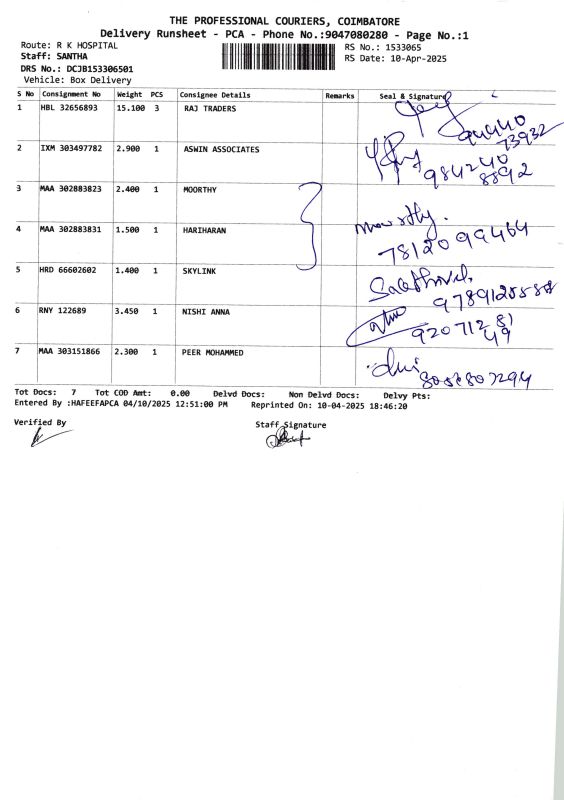 THE PROFESSIONAL COURIERS, COIMBATORE
Delivery Runsheet - PCA - Phone No.:9047080280 - Page No.:1
Route: R K HOSPITAL
Staff: SANTHA
DRS No.: DCJB153306501
Vehicle: Box Delivery
RS No.: 1533065
RS Date: 10-Apr-2025
S No Consignment No Weight PCS Consignee Details Remarks Seal & Signature
1 HBL 32656893 15.100 3 RAJ TRADERS
73932
2 IXM 303497782 2.900 1 ASWIN ASSOCIATES
984240
8892
3 MAA 302883823 2.400 1 MOORTHY
moorthy.
4 MAA 302883831 1.500 1 HARIHARAN
7812099464
5 HRD 66602602 1.400 1 SKYLINK
Sakthivel
6 RNY 122689 3.450 1 NISHI ANNA
92071281
49
7 MAA 303151866 2.300 1 PEER MOHAMMED
Tot Docs: 7 Tot COD Amt: 0.00 Delvd Docs: Non Delvd Docs: Delvy Pts:
Entered By :HAFEEFAPCA 04/10/2025 12:51:00 PM Reprinted On: 10-04-2025 18:46:20
Verified By
Staff Signature